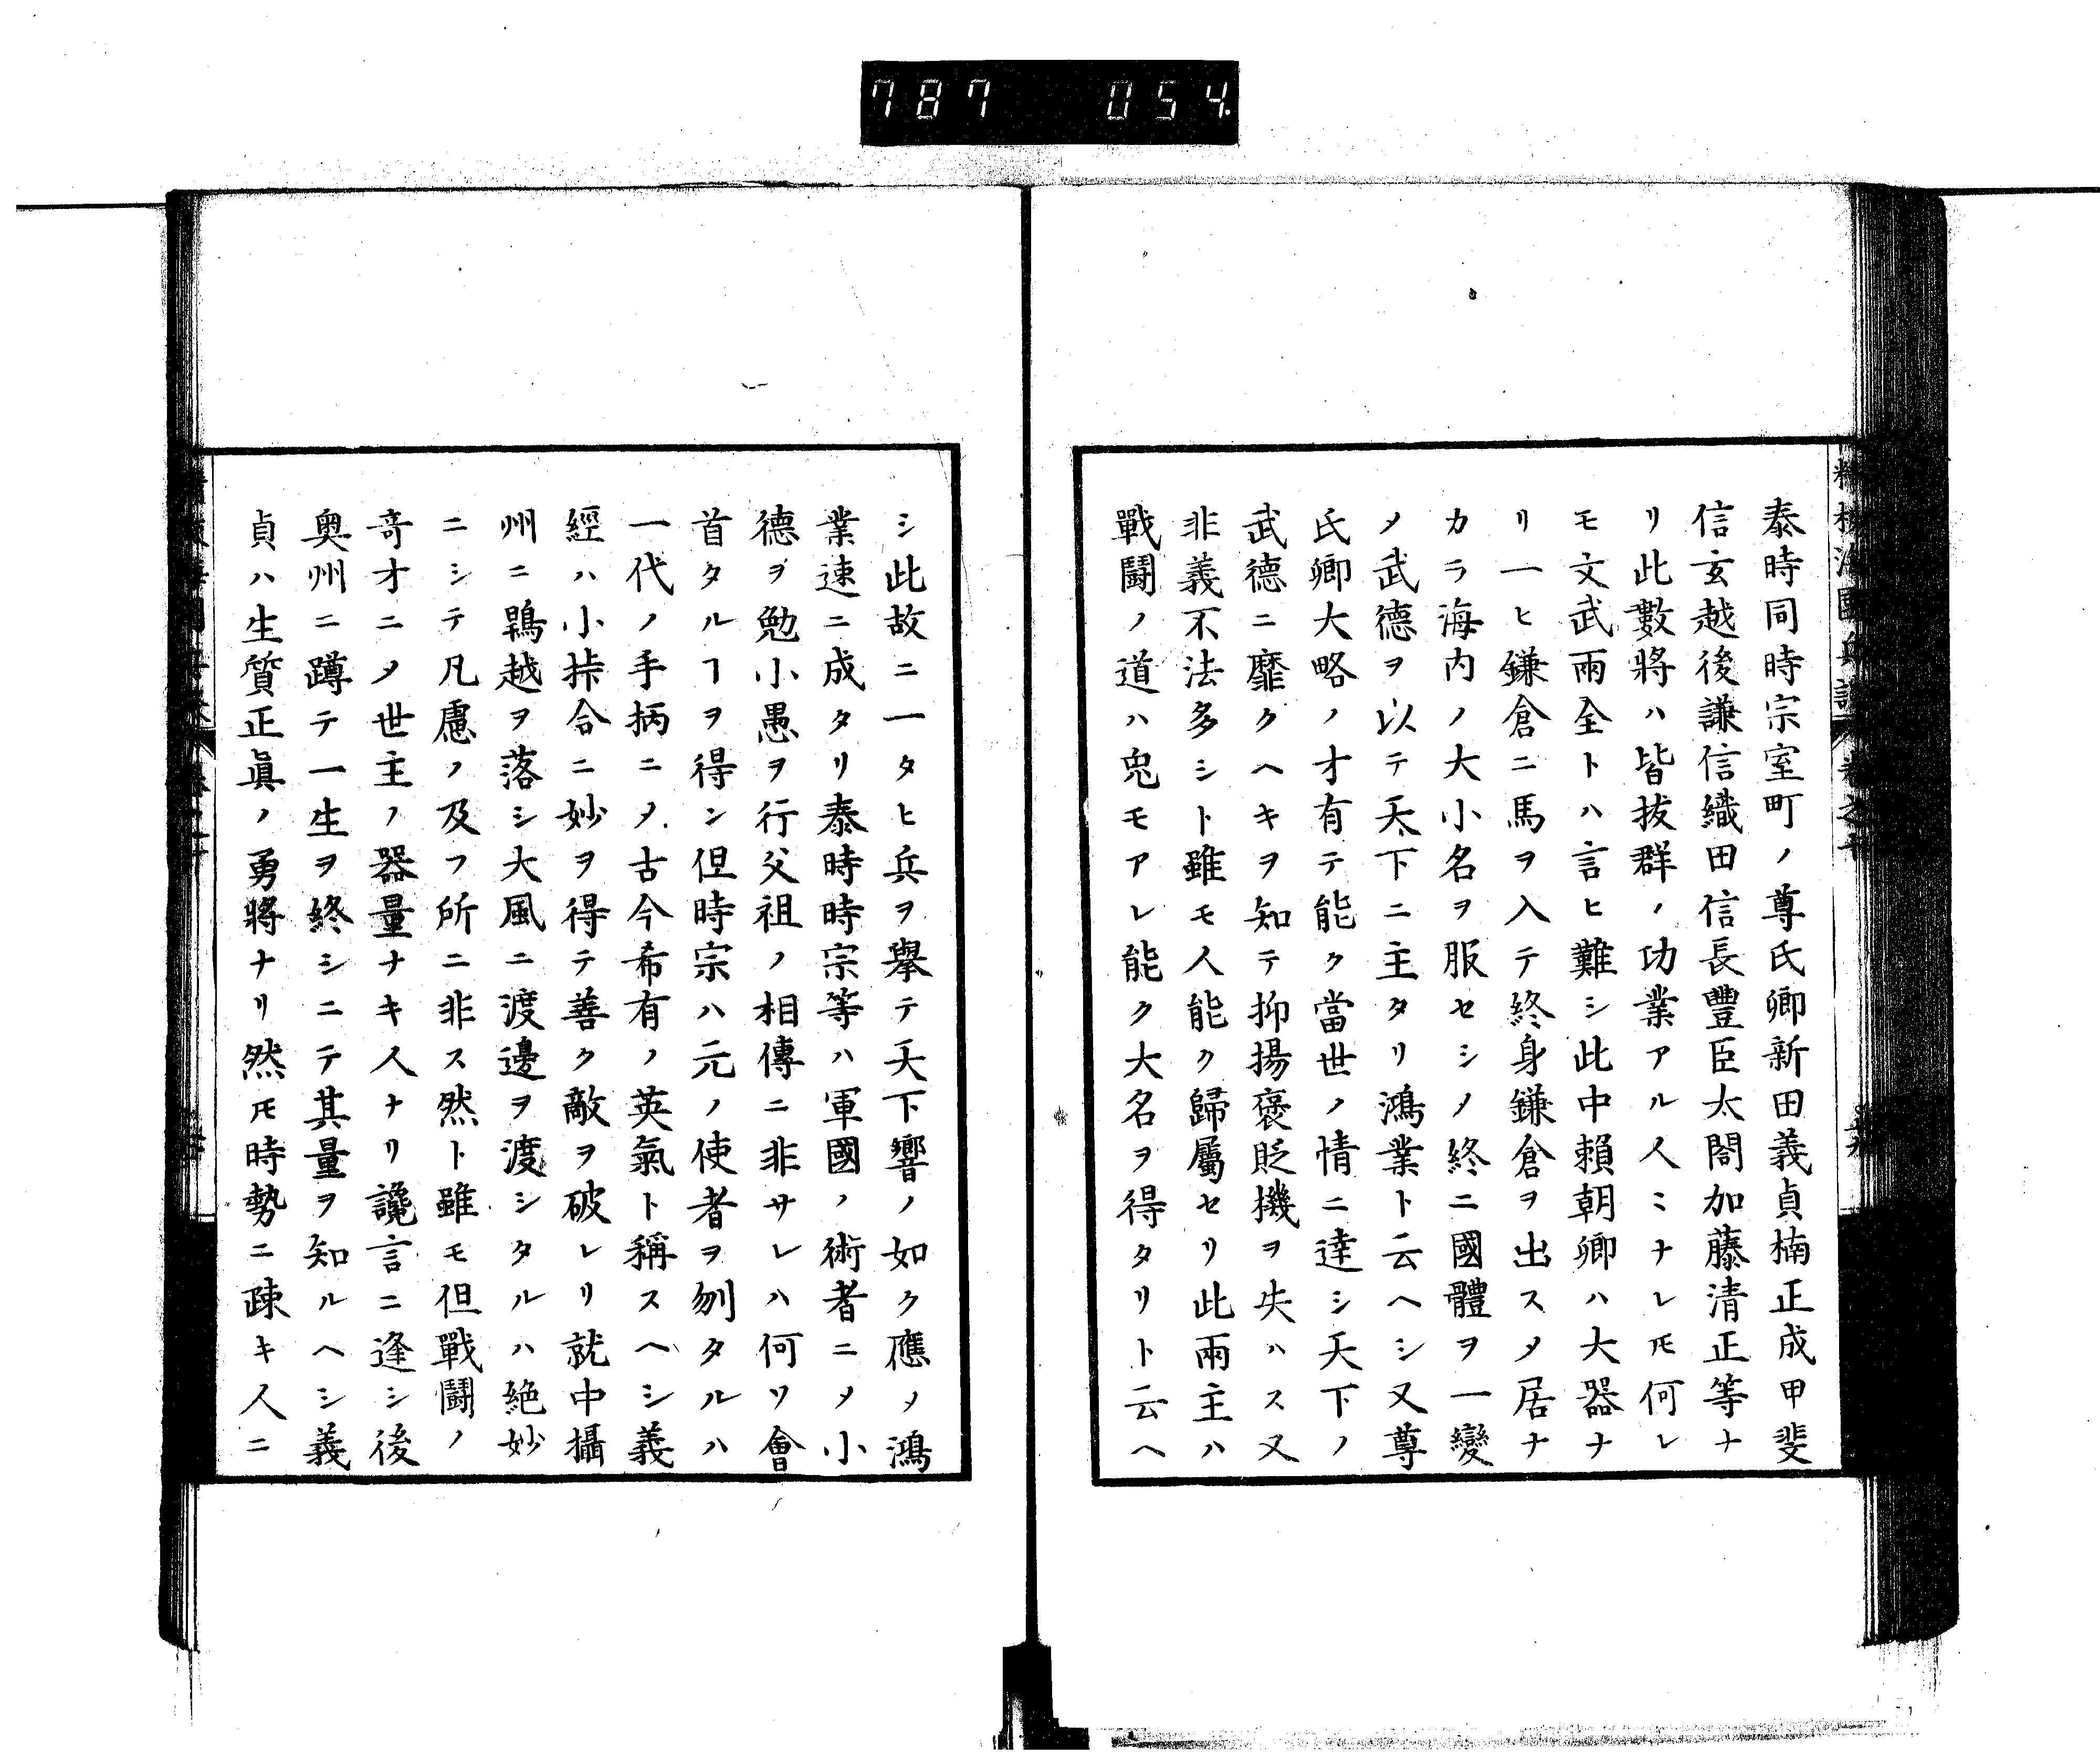 787 054
泰時同時宗室町ノ尊氏卿新田義貞楠正成甲斐
信玄越後謙信織田信長豐臣太閤加藤清正等ナ
リ此數將ハ皆抜群ノ功業アル人ミナレ𪜈何レ
モ文武兩全トハ言ヒ難シ此中賴朝卿ハ大器ナ
リ一ヒ鎌倉ニ馬ヲ入テ終身鎌倉ヲ出スメ居ナ
カラ海内ノ大小名ヲ服セシメ終ニ國體ヲ一變
ノ武德ヲ以テ天下ニ主タリ鴻業ト云ヘシ又尊
氏卿大略ノ才有テ能ク當世ノ情ニ達シ天下ノ
武德ニ靡クヘキヲ知テ抑揚褒貶機ヲ失ハス又
非義不法多シト雖モ人能ク歸屬セリ此兩主ハ
戰鬪ノ道ハ兎モアレ能ク大名ヲ得タリト云ヘ
シ此故ニ一タヒ兵ヲ擧テ天下響ノ如ク應ノ鴻
業速ニ成タリ泰時時宗等ハ軍國ノ術者ニノ小
德ヲ勉小愚ヲ行父祖ノ相傳ニ非サレハ何ソ會
首タルヿヲ得ン但時宗ハ元ノ使者ヲ刎タルハ
一代ノ手柄ニノ古今希有ノ英氣ト稱スヘシ義
經ハ小挊合ニ妙ヲ得テ善ク敵ヲ破レリ就中攝
州ニ鵯越ヲ落シ大風ニ渡邊ヲ渡シタルハ絶妙
ニシテ凡慮ノ及フ所ニ非ス然ト雖モ但戰鬪ノ
奇才ニメ世主ノ器量ナキ人ナリ讒言ニ逢シ後
奥州ニ蹲テ一生ヲ終シニテ其量ヲ知ルヘシ義
貞ハ生質正眞ノ勇將ナリ然𪜈時勢ニ疎キ人ニ